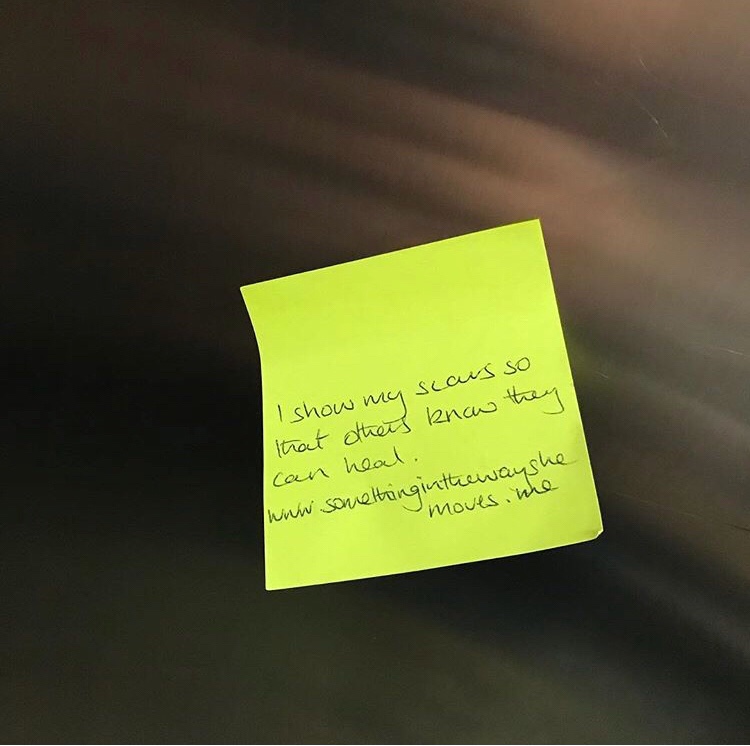 I show my scars so
that others know they
can heal.
www.somethinginthewayshe
moves.me